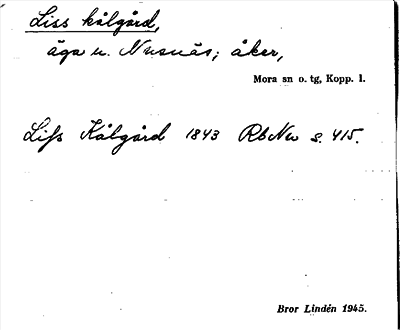 Liss kålgård,
äga u. Nusnäs; åker,
Mora sn o. tg, Kopp. l.
Liſs Kålgård 1843 RbNu s. 415.
Bror Lindén 1945.